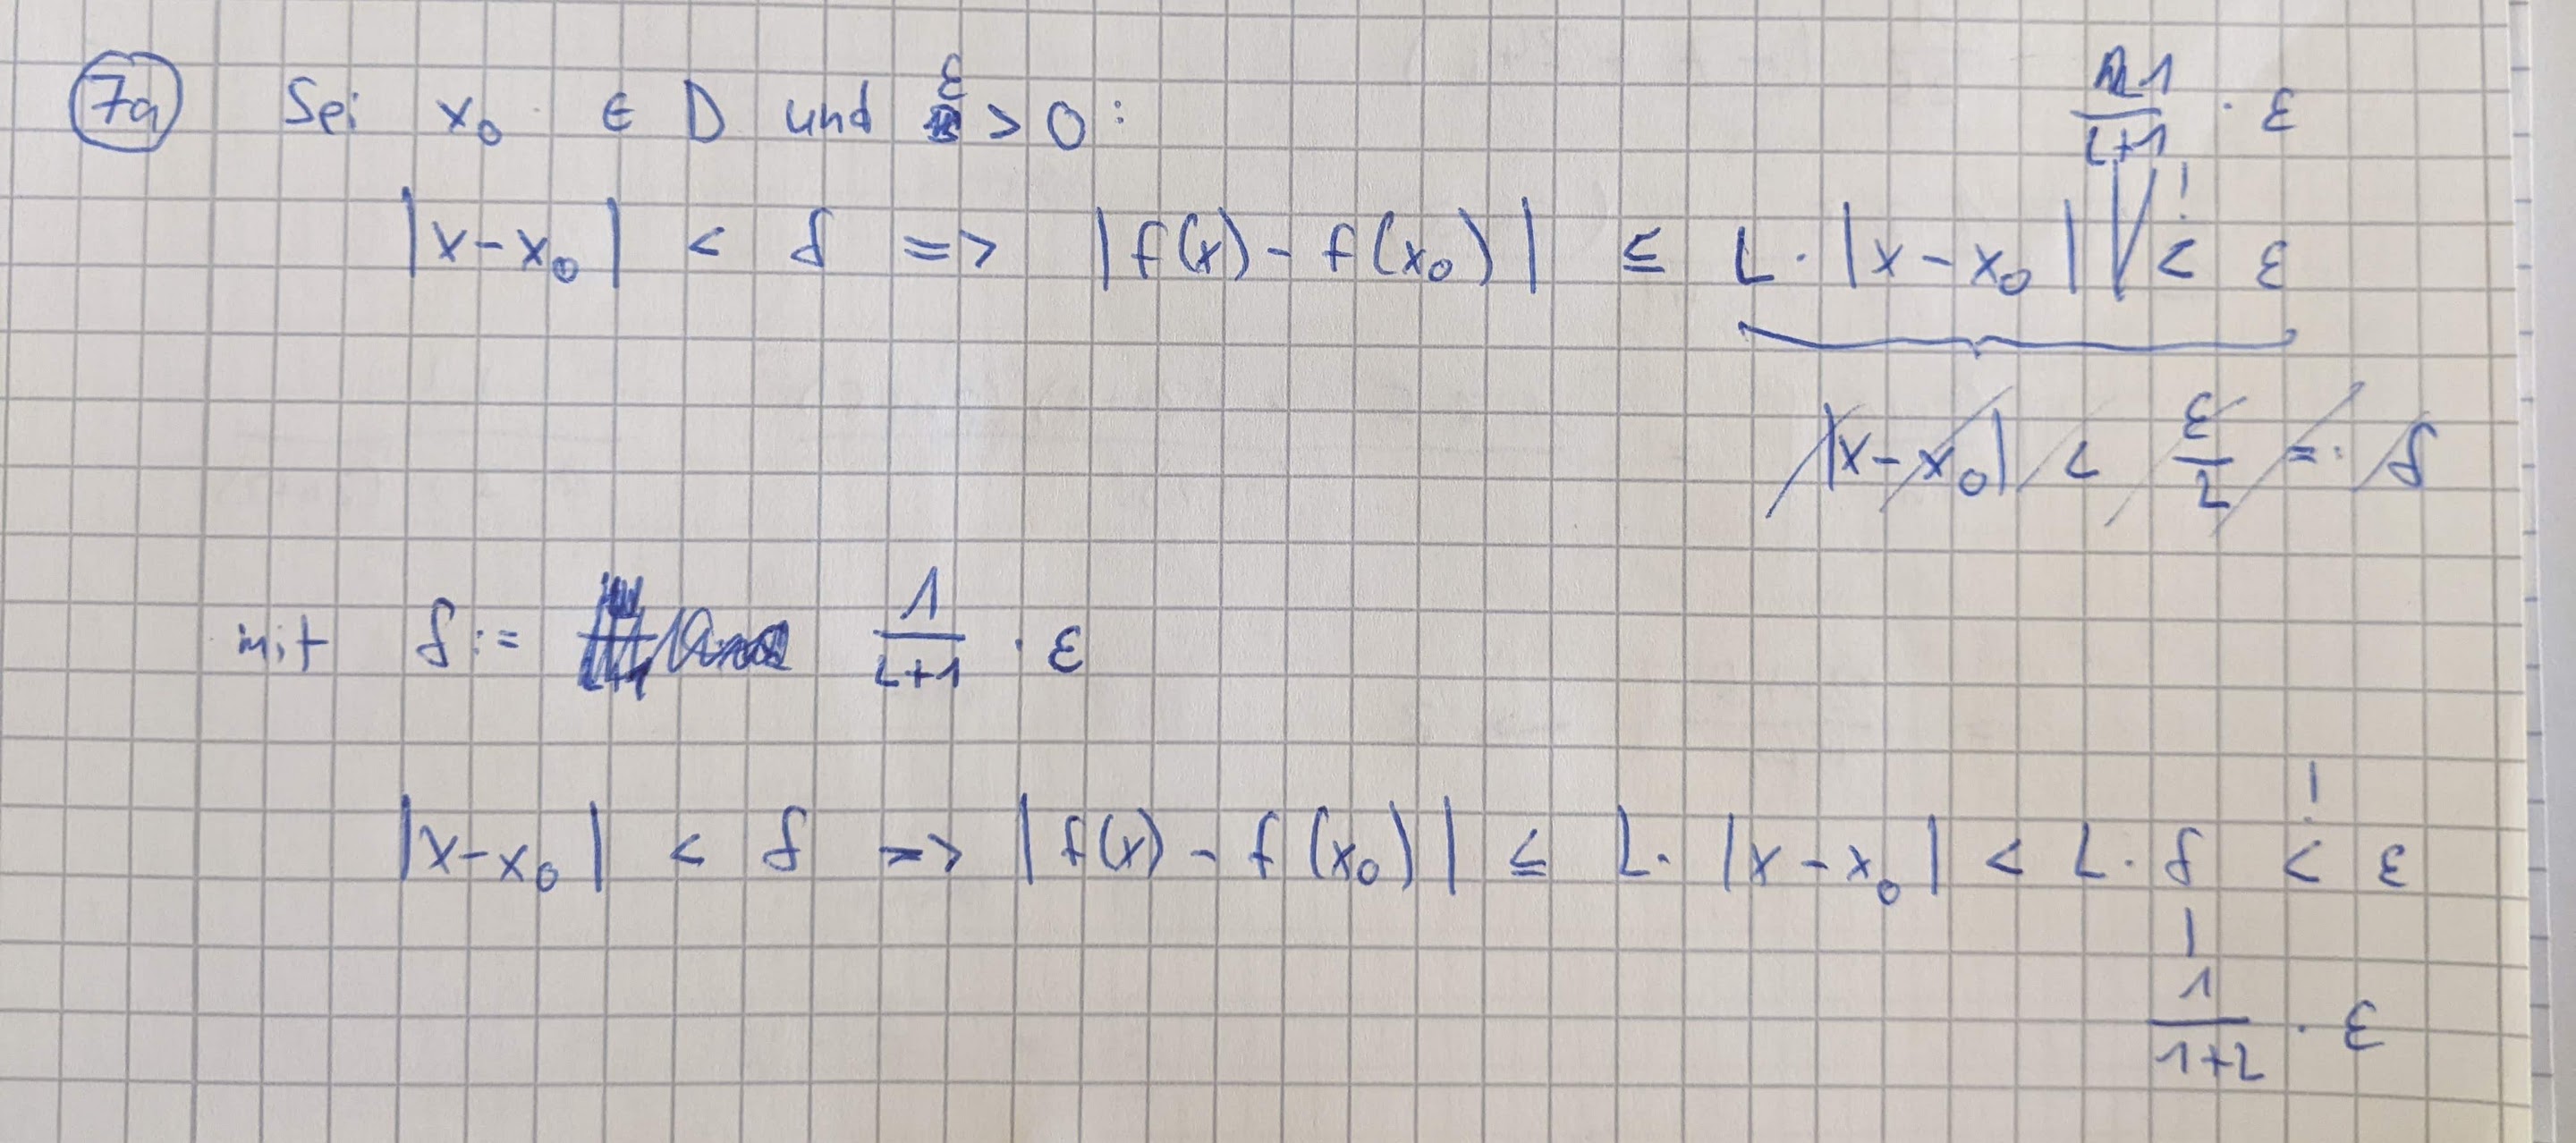 7a Sei x₀ ∈ D und ε > 0:
1/(L+1) · ε
|x-x₀| < δ => |f(x) - f(x₀)| ≤ L · |x - x₀| <! ε
|x - x₀| < ε/L =: δ
mit δ := 1/(L+1) · ε
|x-x₀| < δ => |f(x) - f(x₀)| ≤ L · |x - x₀| < L · δ <! ε
1/(1+L) · ε